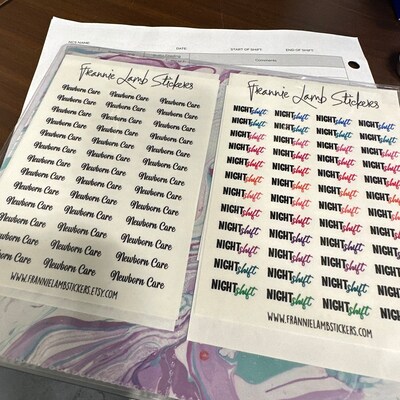 NICK NAME
DATE
START OF SHIFT
END OF SHIFT
Comments
Frannie Lamb Stickers
Newborn Care Newborn Care Newborn Care
Newborn Care Newborn Care Newborn Care
Newborn Care Newborn Care Newborn Care
Newborn Care Newborn Care Newborn Care
Newborn Care Newborn Care Newborn Care
Newborn Care Newborn Care Newborn Care
Newborn Care Newborn Care Newborn Care
Newborn Care Newborn Care Newborn Care
Newborn Care Newborn Care Newborn Care
Newborn Care Newborn Care Newborn Care
Newborn Care Newborn Care Newborn Care
Newborn Care Newborn Care Newborn Care
WWW.FRANNIELAMBSTICKERS.ETSY.COM
Frannie Lamb Stickers
NIGHT shift NIGHT shift NIGHT shift NIGHT shift
NIGHT shift NIGHT shift NIGHT shift NIGHT shift
NIGHT shift NIGHT shift NIGHT shift NIGHT
NIGHT shift NIGHT shift NIGHT shift NIGHT
NIGHT shift NIGHT shift NIGHT shift NIGHT
NIGHT shift NIGHT shift NIGHT shift NIGHT
NIGHT shift NIGHT shift NIGHT shift NIGHT
NIGHT shift NIGHT shift NIGHT shift NIGHT
NIGHT shift NIGHT shift NIGHT shift NIGHT
NIGHT shift NIGHT shift NIGHT shift NIGHT
NIGHT shift NIGHT shift NIGHT shift NIGHT
NIGHT shift NIGHT shift NIGHT shift NIGHT
NIGHT shift NIGHT shift NIGHT shift NIGHT
NIGHT shift NIGHT shift NIGHT shift NIGHT
WWW.FRANNIELAMBSTICKERS.COM